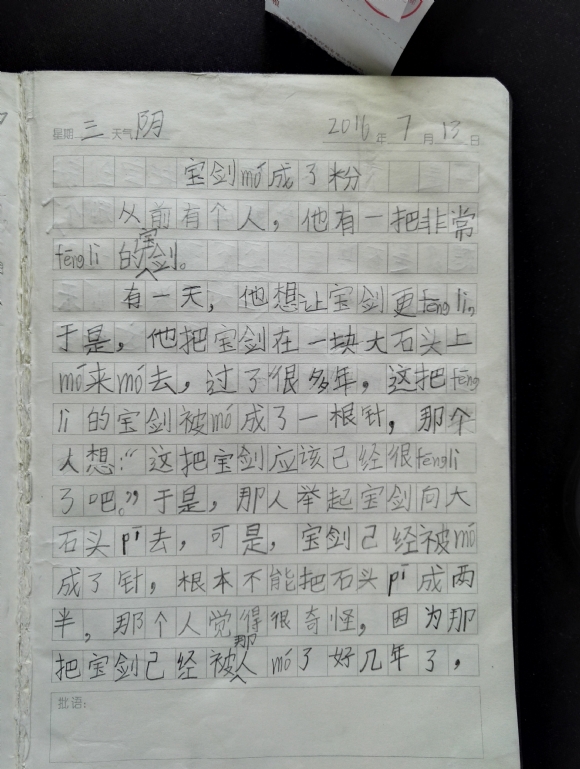 星期 三 天气 阴 2016 年 7 月 13 日
宝剑mó成了粉
从前有个人，他有一把非常
fēnglì的宝剑。
有一天，他想让宝剑更fēnglì，
于是，他把宝剑在一块大石头上
mó来mó去，过了很多年，这把fēng
lì的宝剑被mó成了一根针，那个
人想：“这把宝剑应该已经很fēnglì
了吧。”于是，那人举起宝剑向大
石头pī去，可是，宝剑已经被mó
成了针，根本不能把石头pī成两
半，那个人觉得很奇怪，因为那
把宝剑已经被那人mó了好几年了，
批语：